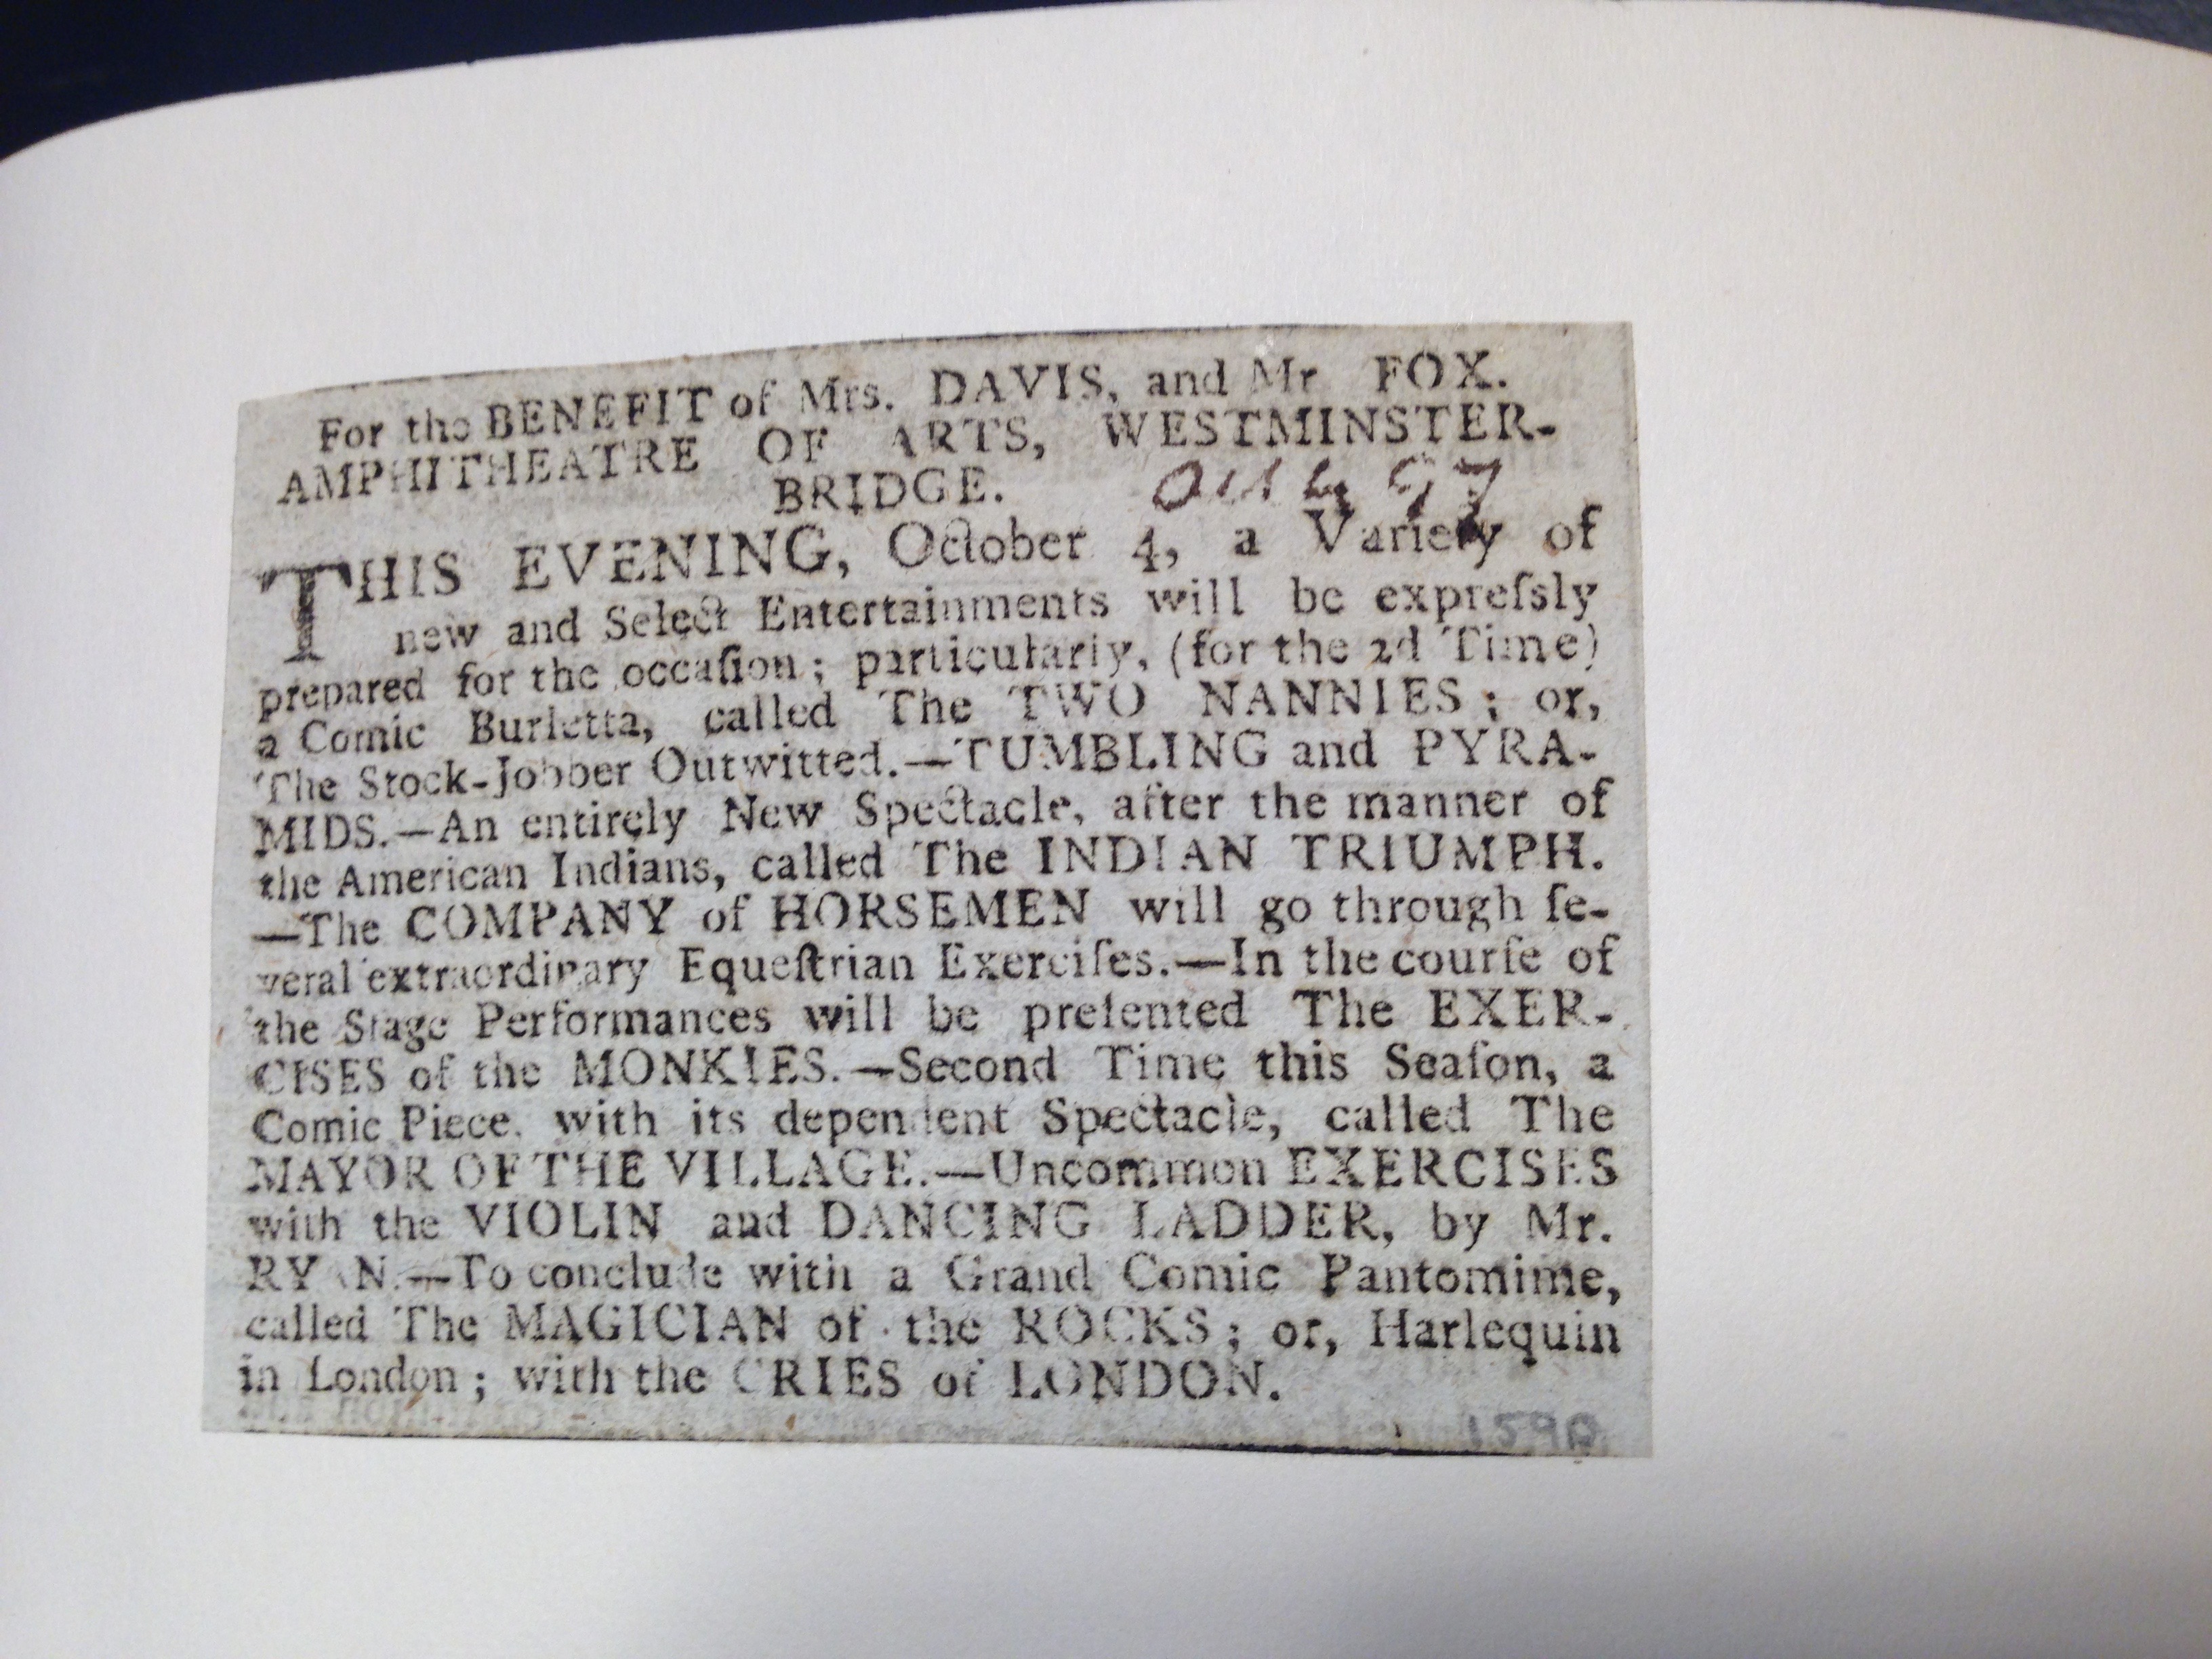 For the BENEFIT of Mrs. DAVIS, and Mr FOX.
AMPHITHEATRE OF ARTS, WESTMINSTER-
BRIDGE. Oct 4 97
THIS EVENING, October 4, a Variety of
new and Select Entertainments will be expreſsly
prepared for the occaſion; particularly, (for the 2d Time)
a Comic Burletta, called The TWO NANNIES; or,
The Stock-Jobber Outwitted.—TUMBLING and PYRA-
MIDS.—An entirely New Spectacle, after the manner of
the American Indians, called The INDIAN TRIUMPH.
—The COMPANY of HORSEMEN will go through ſe-
veral extraordinary Equeſtrian Exerciſes.—In the courſe of
the Stage Performances will be preſented The EXER-
CISES of the MONKIES.—Second Time this Seaſon, a
Comic Piece. with its dependent Spectacle, called The
MAYOR OF THE VILLAGE.—Uncommon EXERCISES
with the VIOLIN and DANCING LADDER, by Mr.
RYAN.—To conclude with a Grand Comic Pantomime,
called The MAGICIAN of the ROCKS; or, Harlequin
in London; with the CRIES of LONDON.